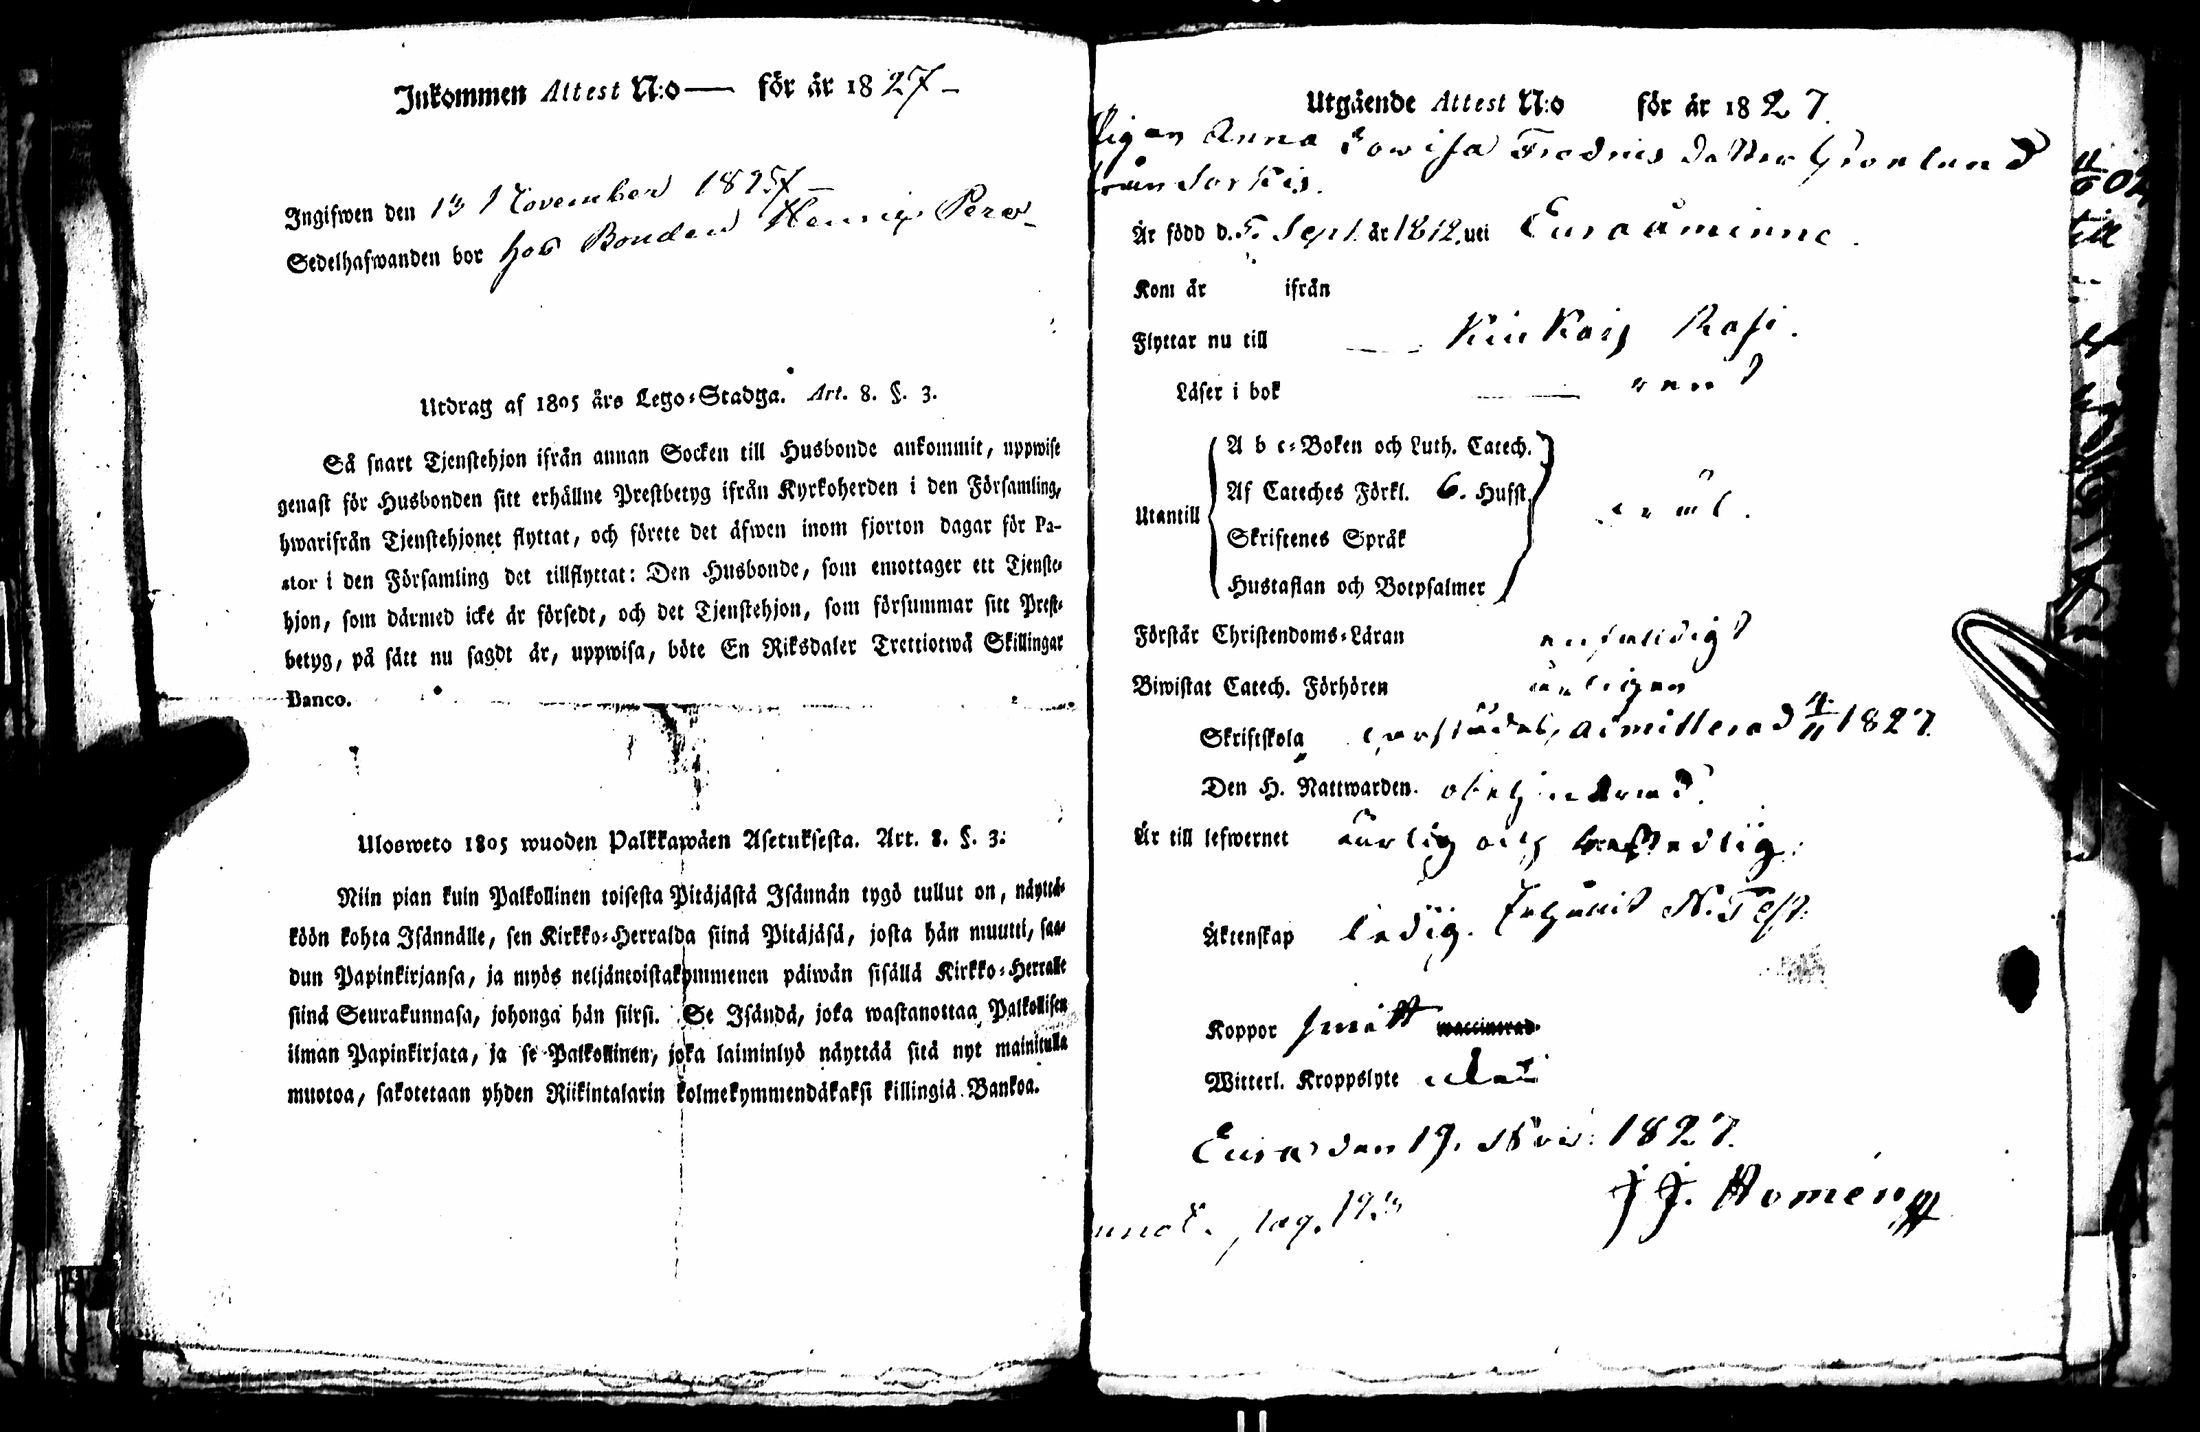 Inkommen Attest N:o — för år 1827 –
Ingifwen den 13 November 1827 –
Sedelhafwanden bor hos Bonden
Utdrag af 1805 års Lego-Stadga. Art. 8. §. 3.
Så snart Tjenstehjon ifrån annan Socken till Husbonde ankommit, uppwise
genast för Husbonden sitt erhållne Prestbetyg ifrån Kyrkoherden i den Församling,
hwarifrån Tjenstehjonet flyttat, och förete det äfwen inom fjorton dagar för Pa-
stor i den Församling det tillflyttat: Den Husbonde, som emottager ett Tjenste-
hjon, som därmed icke är försedt, och det Tjenstehjon, som försummar sitt Prest-
betyg, på sätt nu sagdt är, uppwisa, böte En Riksdaler Trettiotwå Skillingar
Banco.
Ulosweto 1805 wuoden Palkkawäen Asetuksesta. Art. 8. §. 3:
Niin pian kuin Palkollinen toisesta Pitäjästä Isännän tygö tullut on, näyttä-
köön kohta Isännälle, sen Kirkko-Herralda siinä Pitäjäsä, josta hän muutti, saa-
dun Papinkirjansa, ja myös neljäntoistakymmenen päiwän sisällä Kirkko-Herralle
siinä Seurakunnasa, johonga hän siirsi. Se Isändä, joka wastanottaa Palkollisen
ilman Papinkirjata, ja se Palkollinen, joka laiminlyö näyttää sitä nyt mainitulla
muotoa, sakotetaan yhden Riikintalarin kolmekymmendäkaksi killingiä Bankoa.
Utgående Attest N:o för år 1827.
Pigan Anna Lowisa Fredrics dotter Grönlund
från Sorkis.
Är född d. 5. Sept. år 1812. uti Euraåminne.
Kom år ifrån
Flyttar nu till — Kiukais
Läser i bok — rent
Utantill
A b c-Boken och Luth. Catech.
Af Cateches Förkl. 6. Hufst.
Skriftenes Språk
Hustaflan och Botpsalmer
Förstår Christendoms-Läran enfaldigt
Biwistat Catech. Förhören årligen
Skriftskola, admitterad 4/11 1827.
Den H. Nattwarden. obehindrad.
Är till lefwernet ärlig och beskedlig.
Äktenskap ledig. Erhållit N. Test.
Koppor smått waccinerad
Witterl. Kroppslyte utan
Eura den 19. Nov: 1827.
J J. Homén
pag. 19